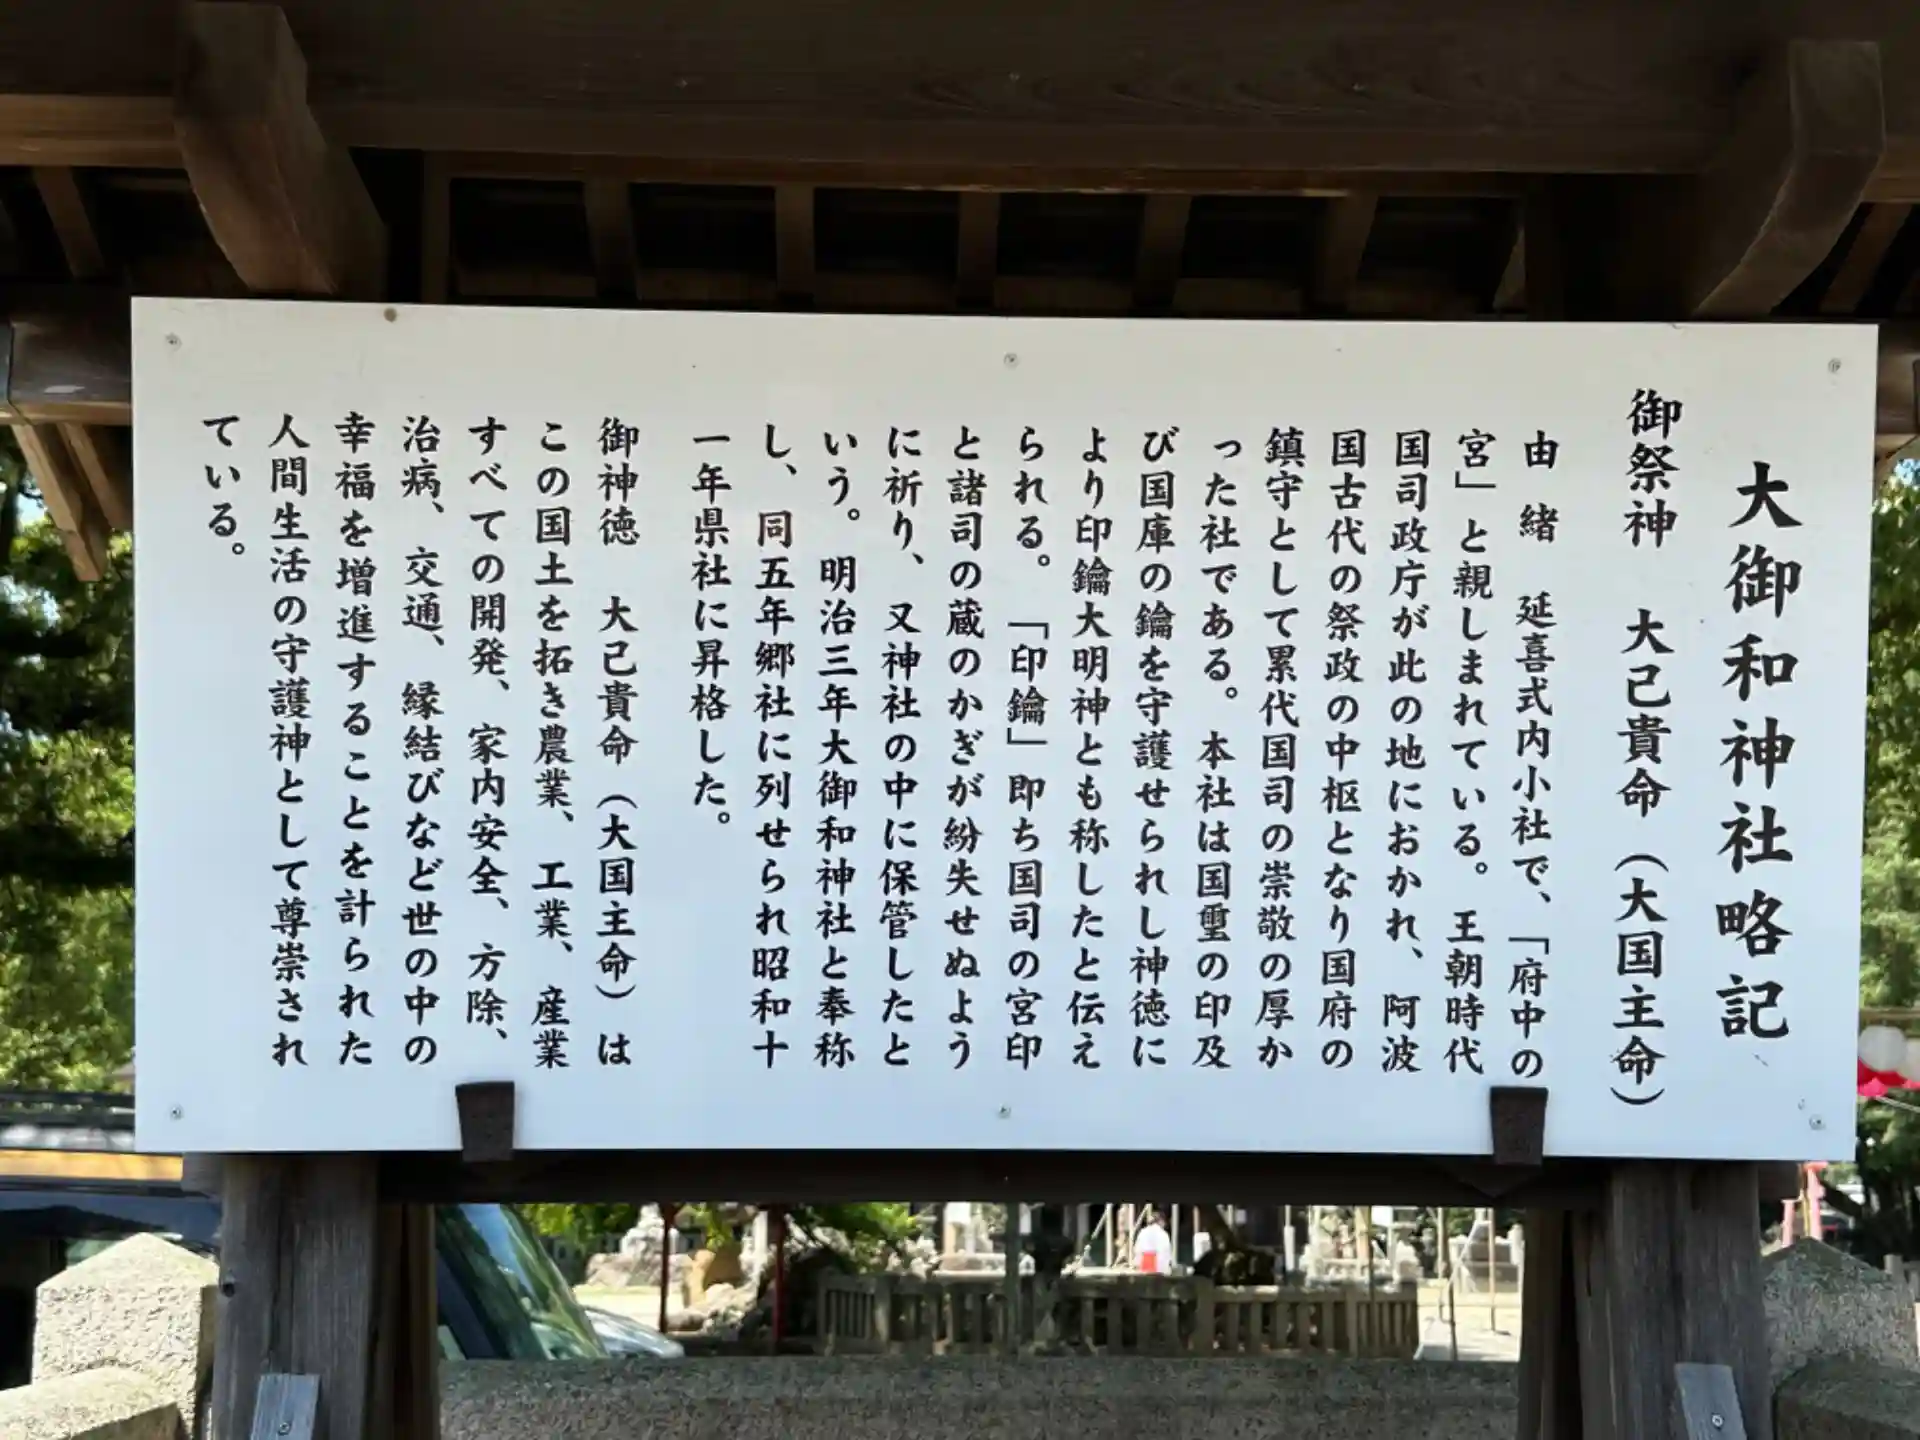 大御和神社略記
御祭神　大己貴命（大国主命）
由　緒　延喜式内小社で、「府中の
宮」と親しまれている。王朝時代
国司政庁が此の地におかれ、阿波
国古代の祭政の中枢となり国府の
鎮守として累代国司の崇敬の厚か
った社である。本社は国璽の印及
び国庫の鑰を守護せられし神徳に
より印鑰大明神とも称したと伝え
られる。「印鑰」即ち国司の宮印
と諸司の蔵のかぎが紛失せぬよう
に祈り、又神社の中に保管したと
いう。明治三年大御和神社と奉称
し、同五年郷社に列せられ昭和十
一年県社に昇格した。
御神徳　大己貴命（大国主命）は
この国土を拓き農業、工業、産業
すべての開発、家内安全、方除、
治病、交通、縁結びなど世の中の
幸福を増進することを計られた
人間生活の守護神として尊崇され
ている。